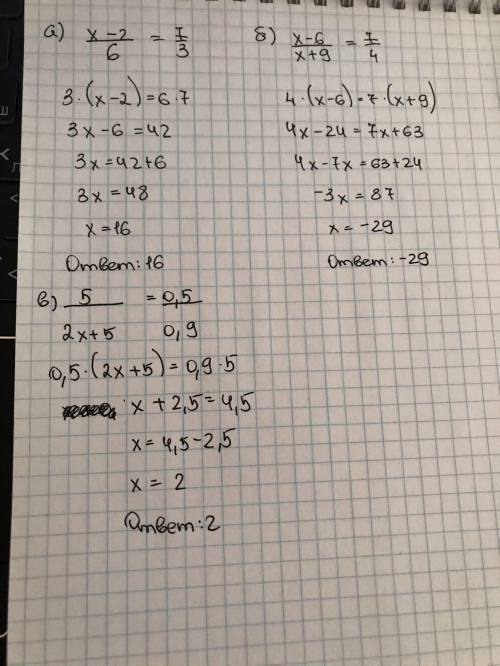 а) x-2/6 = 7/3
3·(x-2)=6·7
3x-6=42
3x=42+6
3x=48
x=16
Ответ:16
б) x-6/x+9 = 7/4
4·(x-6)=7·(x+9)
4x-24=7x+63
4x-7x=63+24
-3x=87
x=-29
Ответ:-29
в) 5/2x+5 = 0,5/0,9
0,5·(2x+5)=0,9·5
x+2,5=4,5
x=4,5-2,5
x=2
Ответ:2